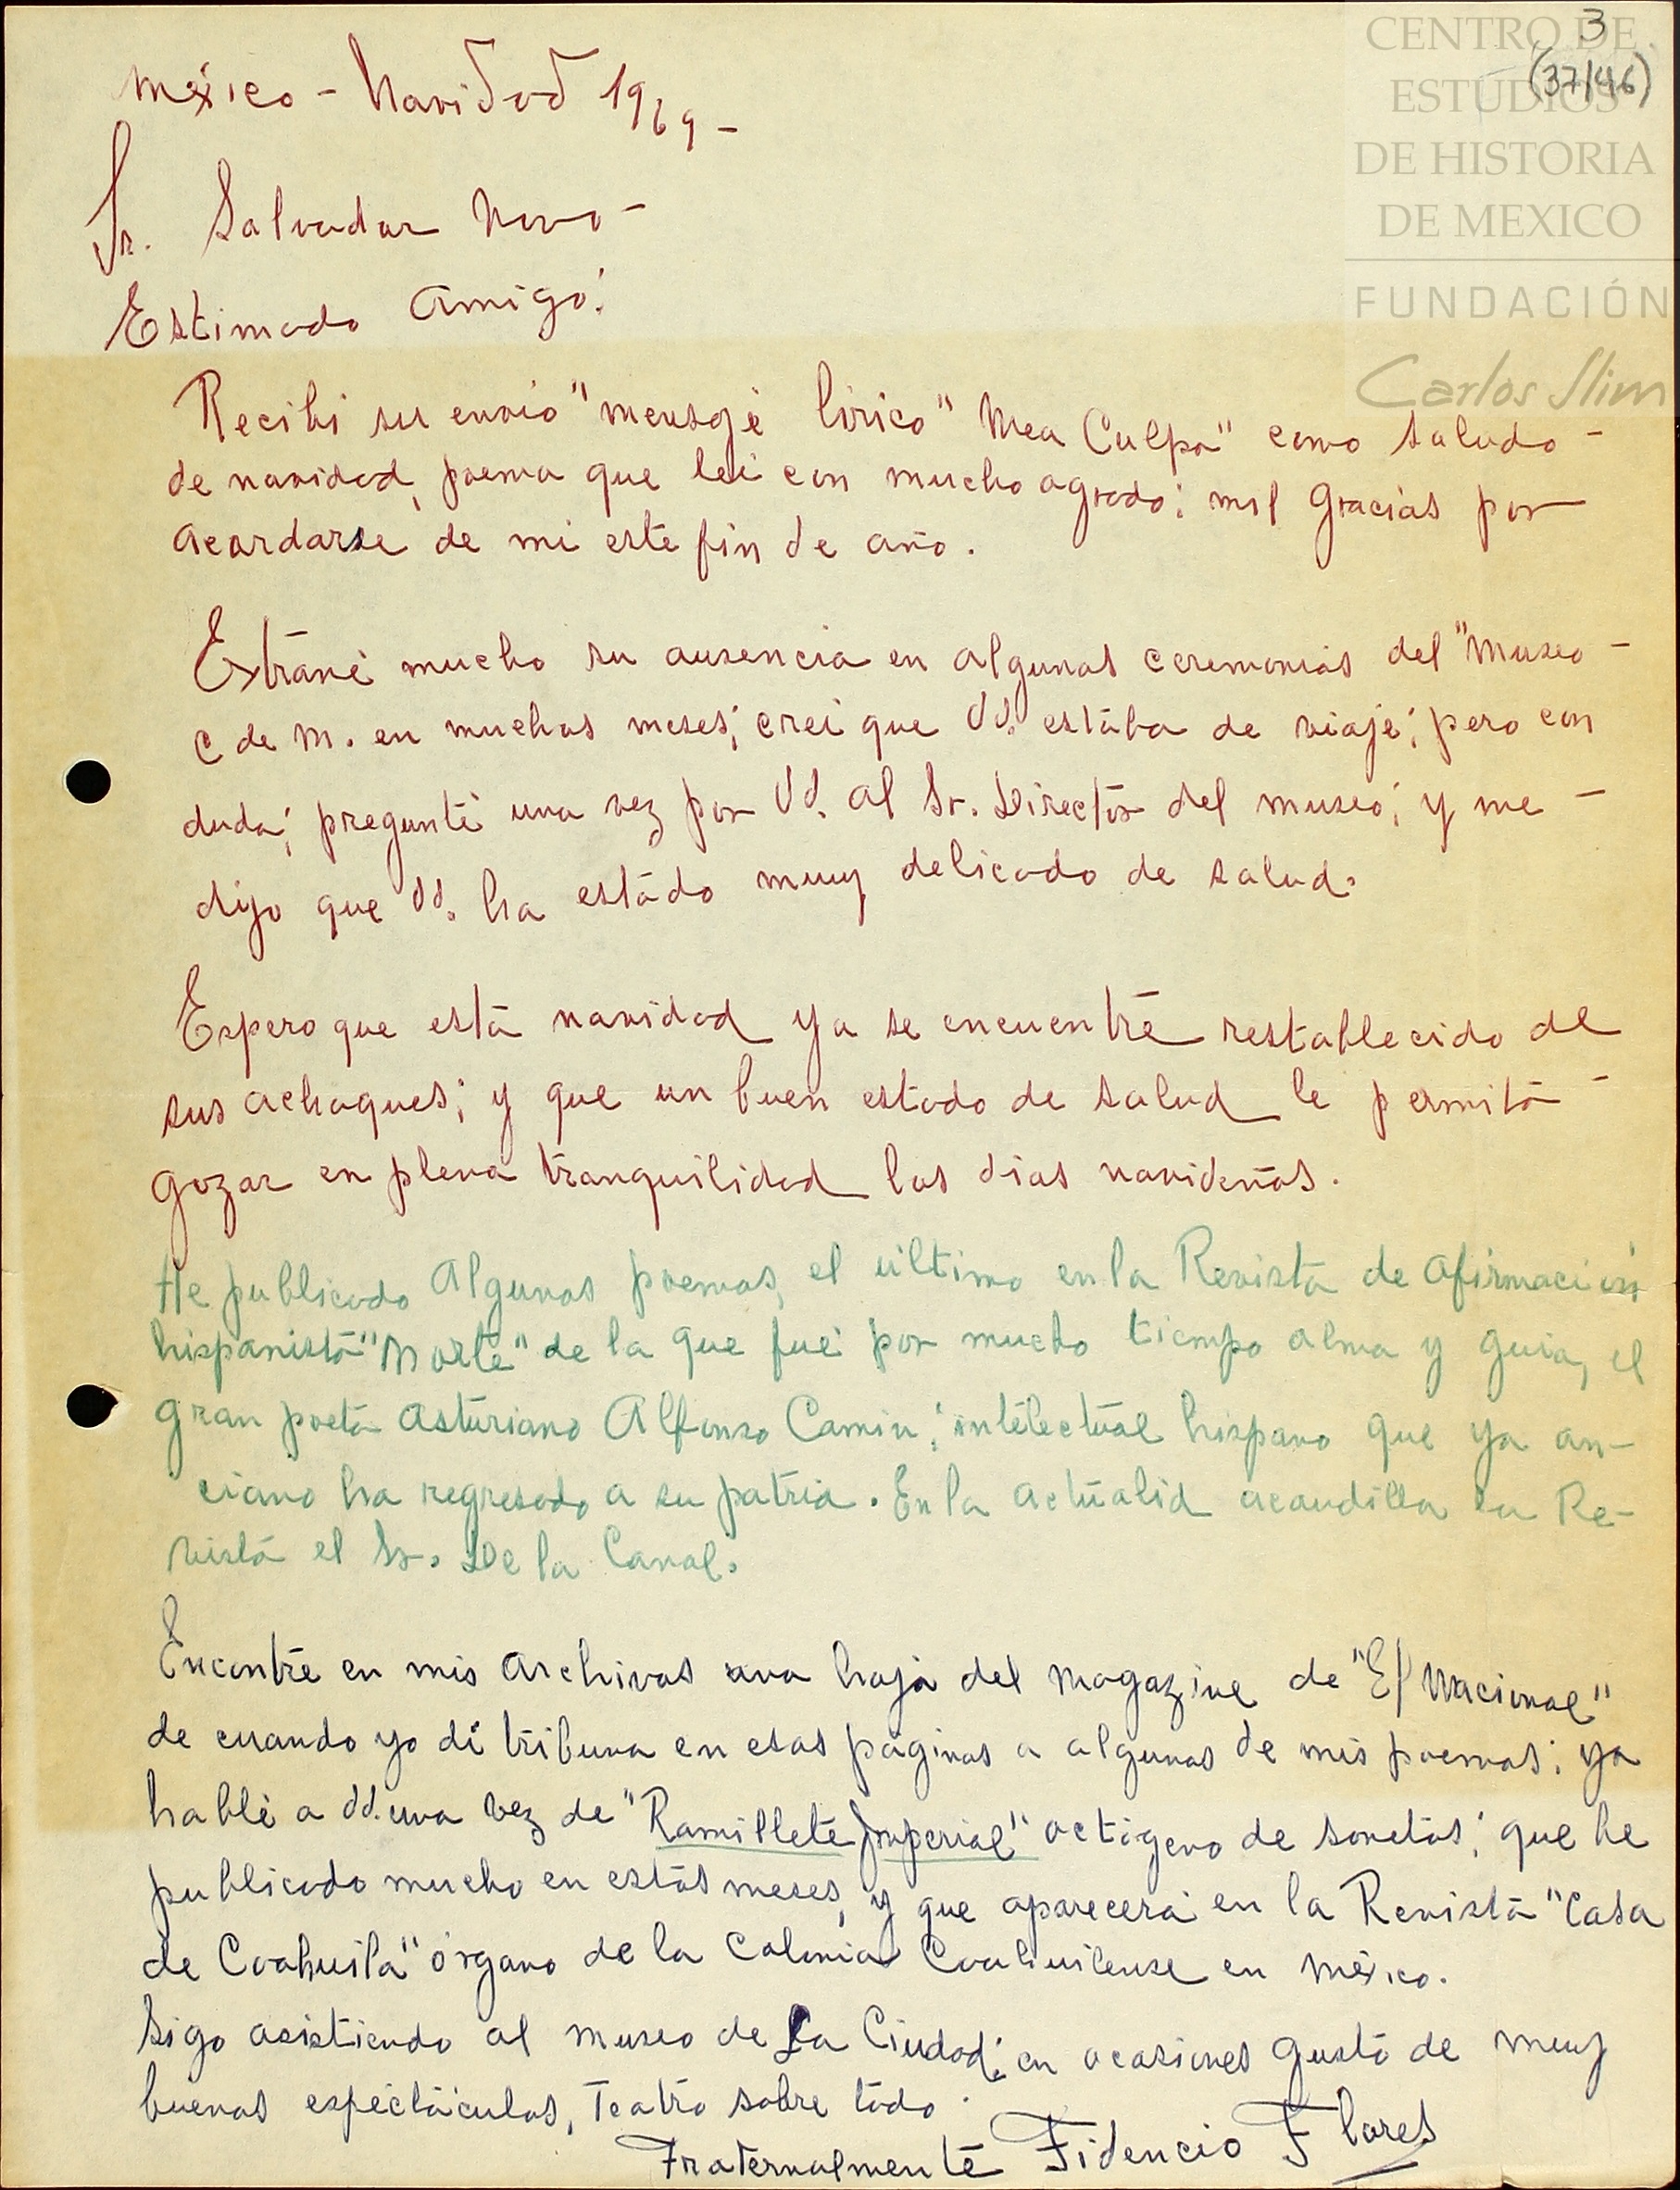 CENTRO DE
ESTUDIOS
DE HISTORIA
DE MEXICO
FUNDACIÓN
Carlos Slim
3
(37/46)
México - Navidad 1969 -
Sr. Salvador Novo -
Estimado Amigo:
Recibí su envío "mensaje lírico" "Mea Culpa" como saludo -
de navidad, poema que leí con mucho agrado; mil gracias por
acordarse de mi este fin de año.
Extrañé mucho su ausencia en algunas ceremonias del "Museo -
C de M. en muchos meses; creí que Ud. estaba de viaje; pero con
duda; pregunté una vez por Ud. al Sr. Director del museo; y me -
dijo que Ud. ha estado muy delicado de salud.
Espero que esta navidad ya se encuentre restablecido de
sus achaques; y que un buen estado de salud le permita -
gozar en plena tranquilidad los días navideños.
He publicado Algunos poemas, el último en la Revista de afirmación
hispanista "Norte" de la que fué por mucho tiempo alma y guía, el
gran poeta asturiano Alfonso Camín; intelectual hispano que ya an-
ciano ha regresado a su patria. En la actualid acaudilla la Re-
vista el Sr. De la Canal.
Encontré en mis archivos una hoja del magazine de "El Nacional"
de cuando yo dí tribuna en esas páginas a algunos de mis poemas; ya
hablé a Ud. una vez de "Ramillete Imperial" octógeno de sonetos; que he
publicado mucho en estos meses, y que aparecerá en la Revista "Casa
de Coahuila" órgano de la Colonia Coahuilense en México.
Sigo asistiendo al museo de La Ciudad; en ocasiones gusto de muy
buenos espectáculos, Teatro sobre todo.
Fraternalmente Fidencio Flores